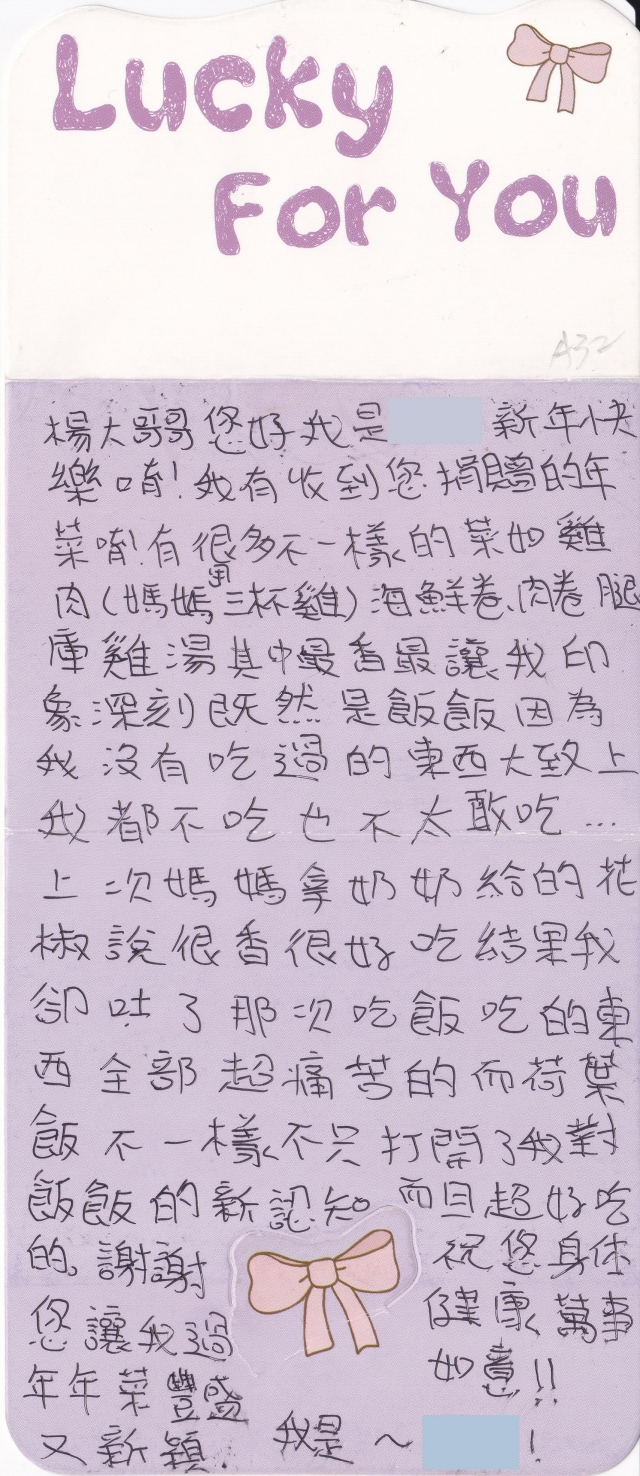 Lucky
For You
A32
楊大哥哥您好我是 新年快
樂唷!我有收到您捐贈的年
菜唷!有很多不一樣的菜如雞
肉(媽媽用三杯雞)海鮮卷、肉卷腿
庫雞湯其中最香最讓我印
象深刻既然是飯飯因為
我沒有吃過的東西大致上
我都不吃也不太敢吃...
上次媽媽拿奶奶給的花
椒說很香很好吃結果我
卻吐了那次吃飯吃的東
西全部超痛苦的而荷葉
飯不一樣不只打開了我對
飯飯的新認知。而且超好吃
的。謝謝
您讓我過
年年菜豐盛
又新穎.
祝您身体
健康、萬事
如意!!
我是~ !